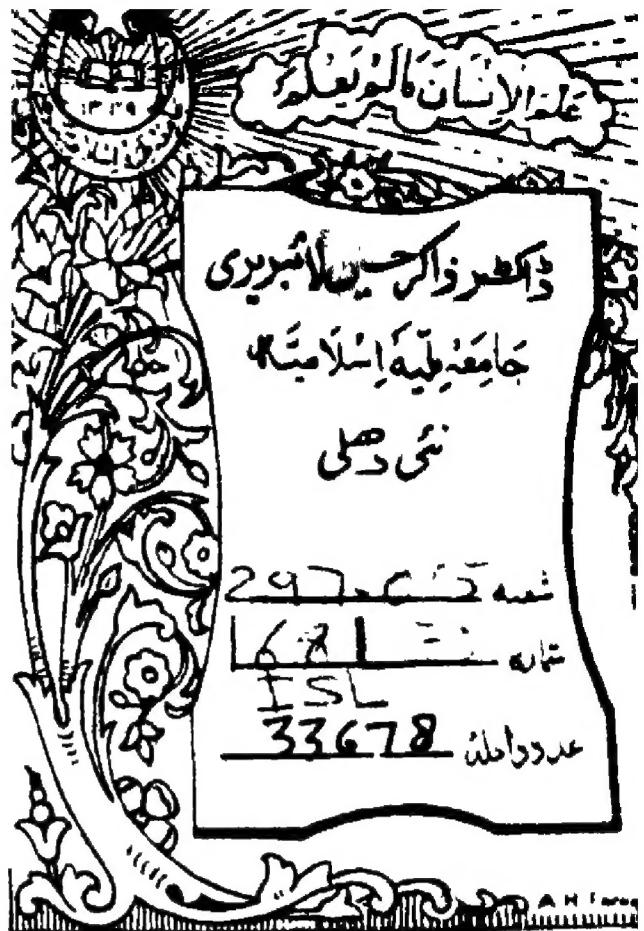 عَلَّمَ الْإِنْسَانَ مَا لَمْ يَعْلَمْ
۱۳۳۹
ڈاکٹر ذاکر حسین لائبریری
جَامِعَہ مِلّیَہ اِسْلَامیَہ
نئی دھلی
شعبہ 297.
شمارہ 168
ISL
عدد داخلہ 33678
A H Faruq